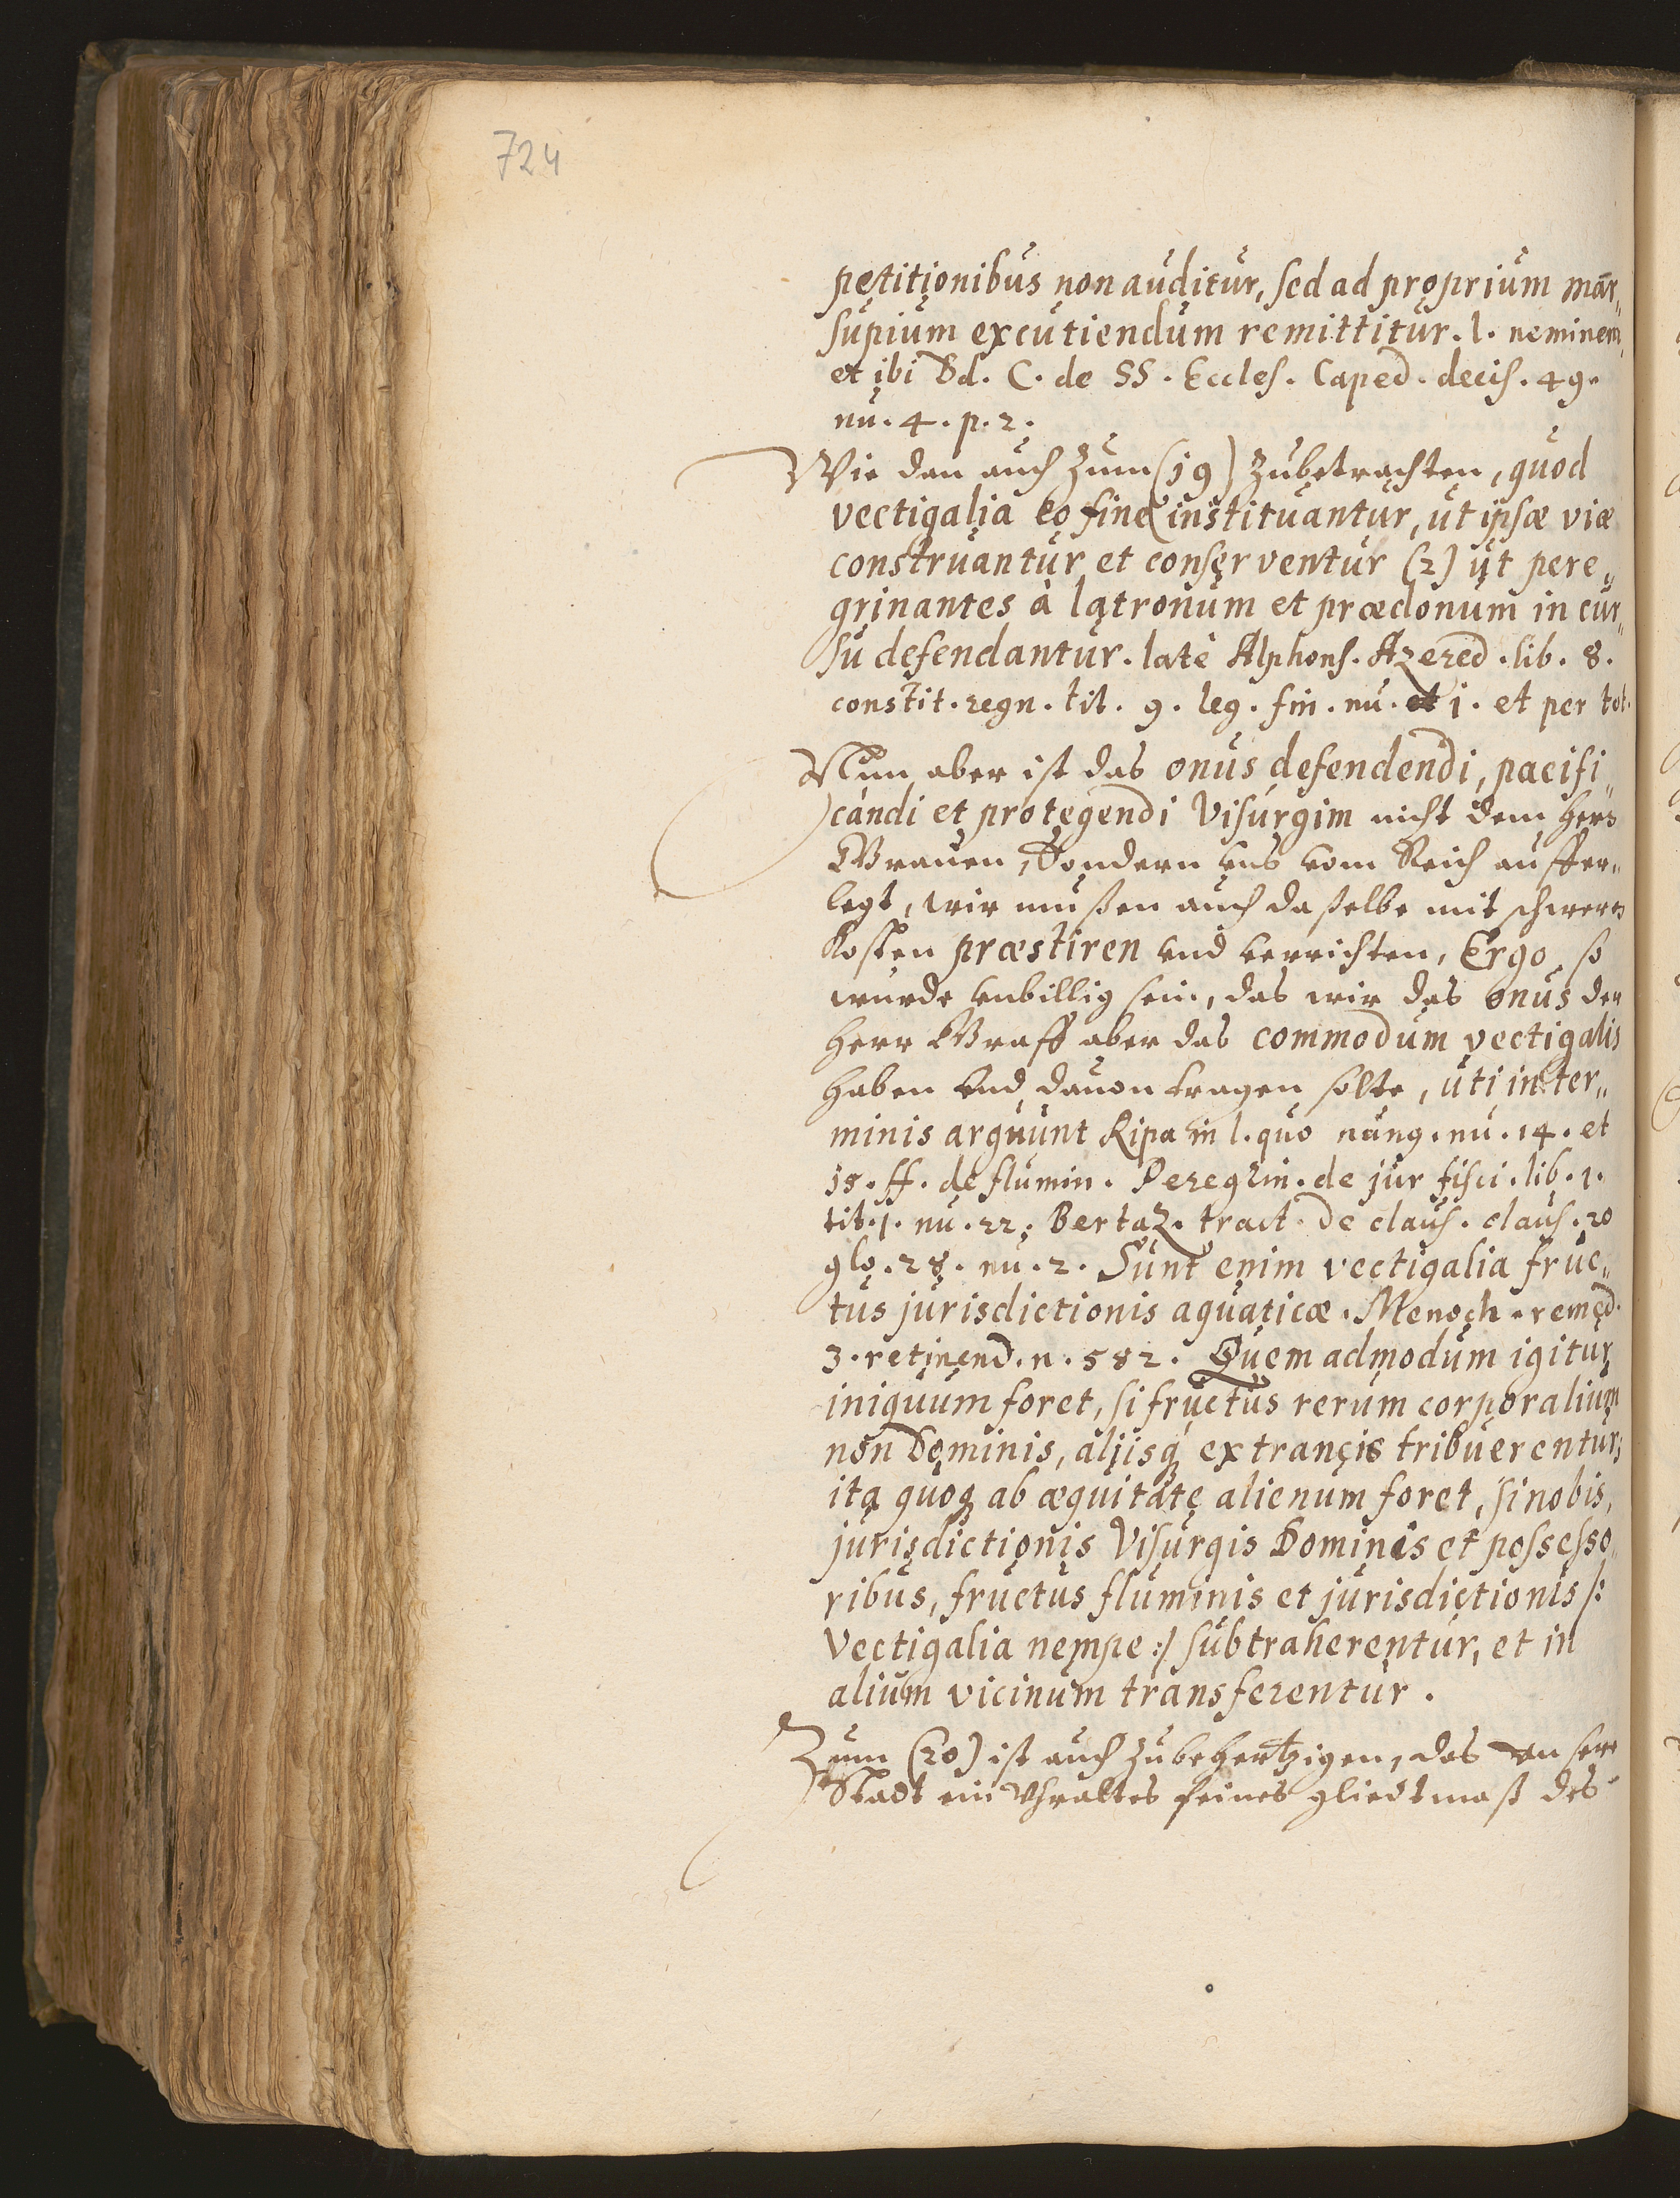 724
petitionibus non auditur, sed ad proprium mar„
supium excutiendum remittitur. l. neminem„
et ibi Dd. C. de SS. Eccles. Caped. decis. 49.
nu. 4. p. 2.
Wie dan auch zum (19) zubetrachten, quod
vectigalia eo fine instituantur, ut ipsæ viæ
construantur et conserventur (2) ut pere„
grinantes à latronum et prædonum in cur„
su defendantur. latè Alphons. Azeved. lib. 8.
constit. regn. tit. 9. leg. fin. nu. et 1. et per tot.
Nun aber ist das onus defendendi, pacifi„
candi et protegendi Visurgim nicht dem hern
Grauen, Sondern vns vom Reich auffer„
legt, wir mußen auch daßelbe mit schweren
Kosten præstiren vnd verrichten, Ergo, so
wurde vnbillig sein, das wir das onus der
Herr Graff aber das commodum vectigalis
haben vnd dauon tragen solte, uti in ter„
minis arguunt Ripa in l. quo nünq. nu. 14. et
15. ff. de flumin. Peregrin. de jur fisci. lib. 1.
tit. 1. nu. 22. Bertaz. tract. de claus. claus. 20
glo. 28. nu. 2. Sunt enim vectigalia fruc„
tus jurisdictionis aquaticæ. Menoch. remed.
3. retinend. n. 582. Quem admodum igitur
iniquum foret, si fructus rerum corporalium
non Dominis, aliisq; extraneis tribuerentur;
ita quoq; ab æquitate alienum foret, si nobis,
jurisdictionis Visurgis Dominis et possesso„
ribus, fructus fluminis et jurisdictionis /:
Vectigalia nempe :/ subtraherentur, et in
alium vicinum transferentur.
Zum (20) ist auch zubehertzigen, das vnsere
Stadt ein Vhraltes feines gliedtmaß des